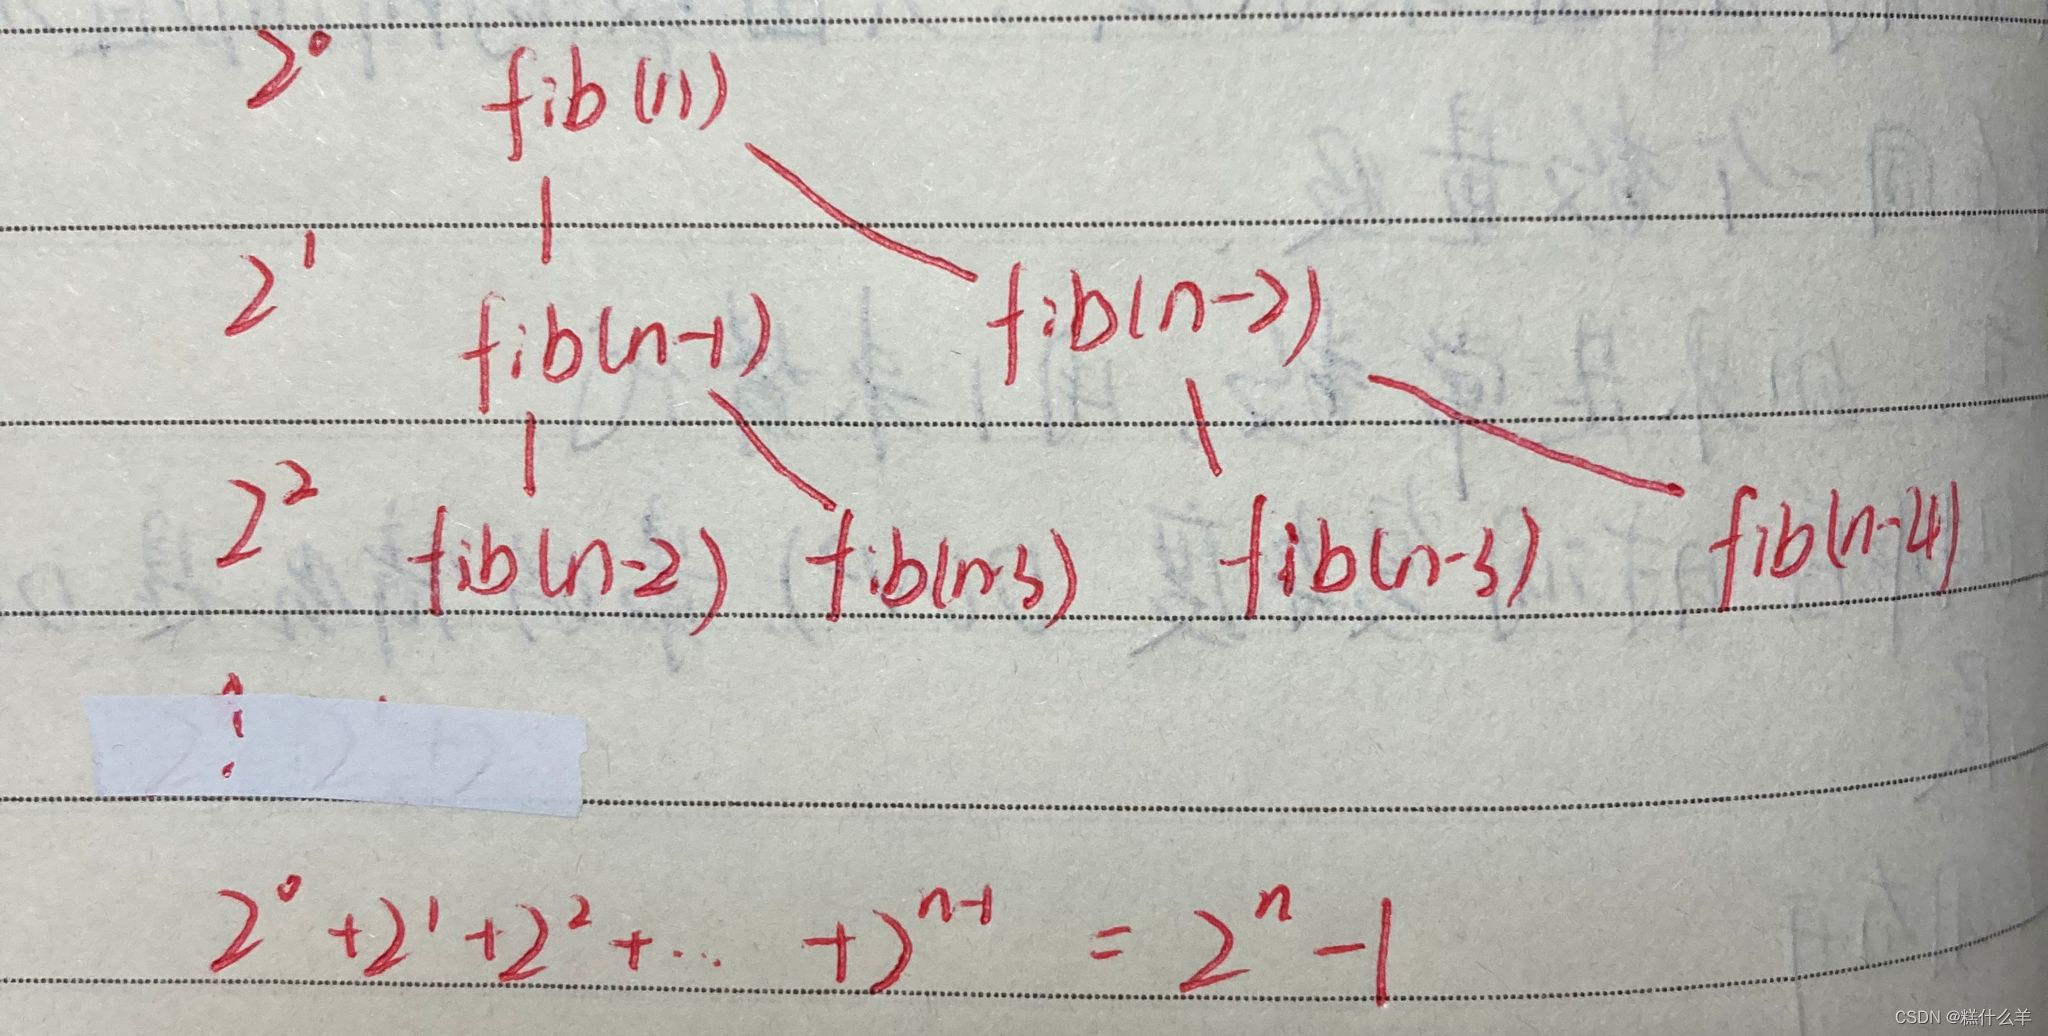 2⁰ fib(n)
2¹ fib(n-1) fib(n-2)
2² fib(n-2) fib(n-3) fib(n-3) fib(n-4)
⋮
2⁰+2¹+2²+... +2ⁿ⁻¹ = 2ⁿ-1
CSDN @糕什么羊